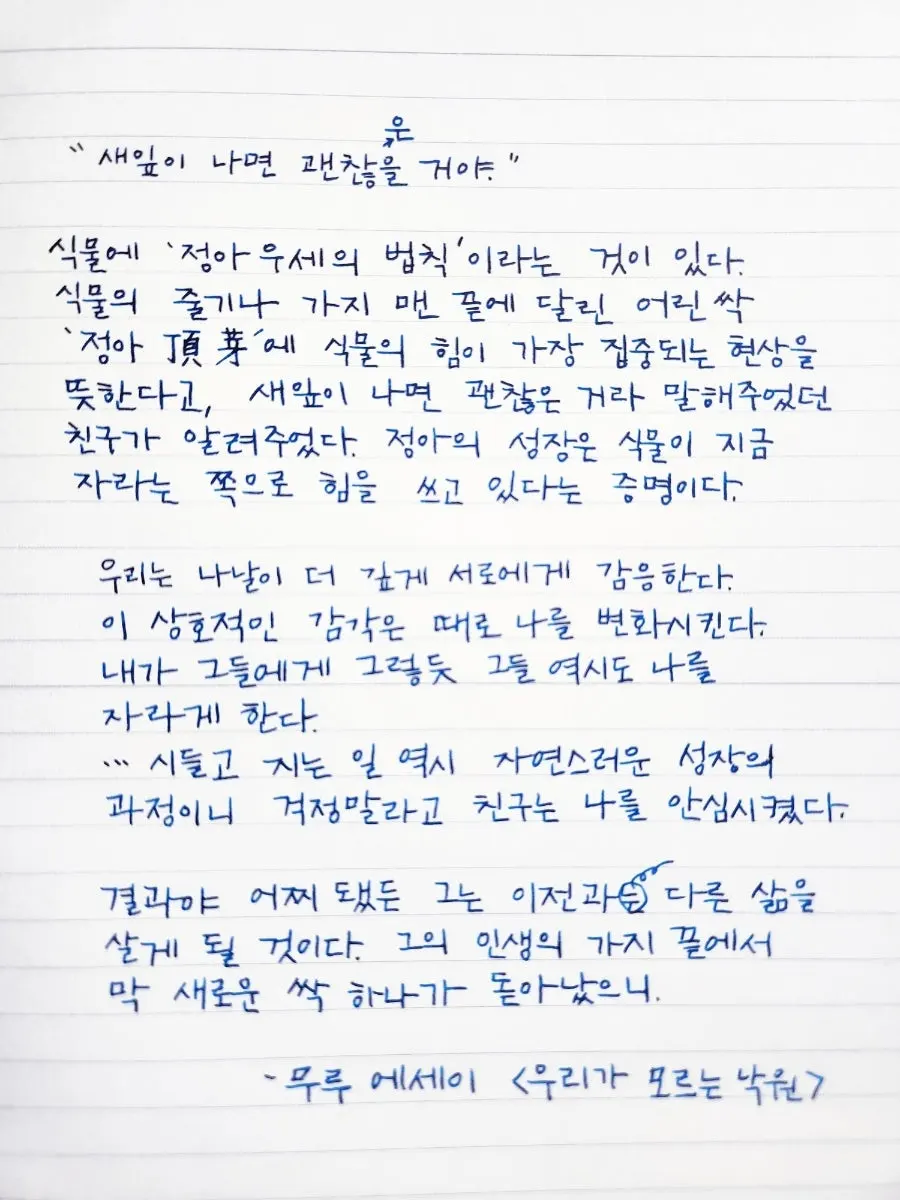 은
"새잎이 나면 괜찮을 거야."
식물에 '정아우세의 법칙'이라는 것이 있다.
식물의 줄기나 가지 맨 끝에 달린 어린 싹
'정아 頂芽'에 식물의 힘이 가장 집중되는 현상을
뜻한다고, 새잎이 나면 괜찮은 거라 말해주었던
친구가 알려주었다. 정아의 성장은 식물이 지금
자라는 쪽으로 힘을 쓰고 있다는 증명이다.
우리는 나날이 더 깊게 서로에게 감응한다.
이 상호적인 감각은 때로 나를 변화시킨다.
내가 그들에게 그렇듯 그들 역시도 나를
자라게 한다.
… 시들고 지는 일 역시 자연스러운 성장의
과정이니 걱정말라고 친구는 나를 안심시켰다.
결과야 어찌 됐든 그는 이전과 다른 삶을
살게 될 것이다. 그의 인생의 가지 끝에서
막 새로운 싹 하나가 돋아났으니.
- 무루 에세이 <우리가 모르는 낙원>